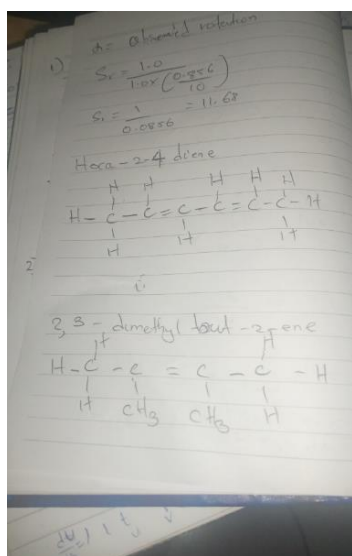 α = observed rotation
1) Sr = 1.0 / 1.0 x (0.856 / 10)
Sr = 1 / 0.0856 = 11.68
Hexa-2-4 diene
H H H H H
H - C - C = C - C = C - C - H
H H H
2
i
2,3 - dimethyl but -2-ene
H H
H - C - C = C - C - H
H CH3 CH3 H